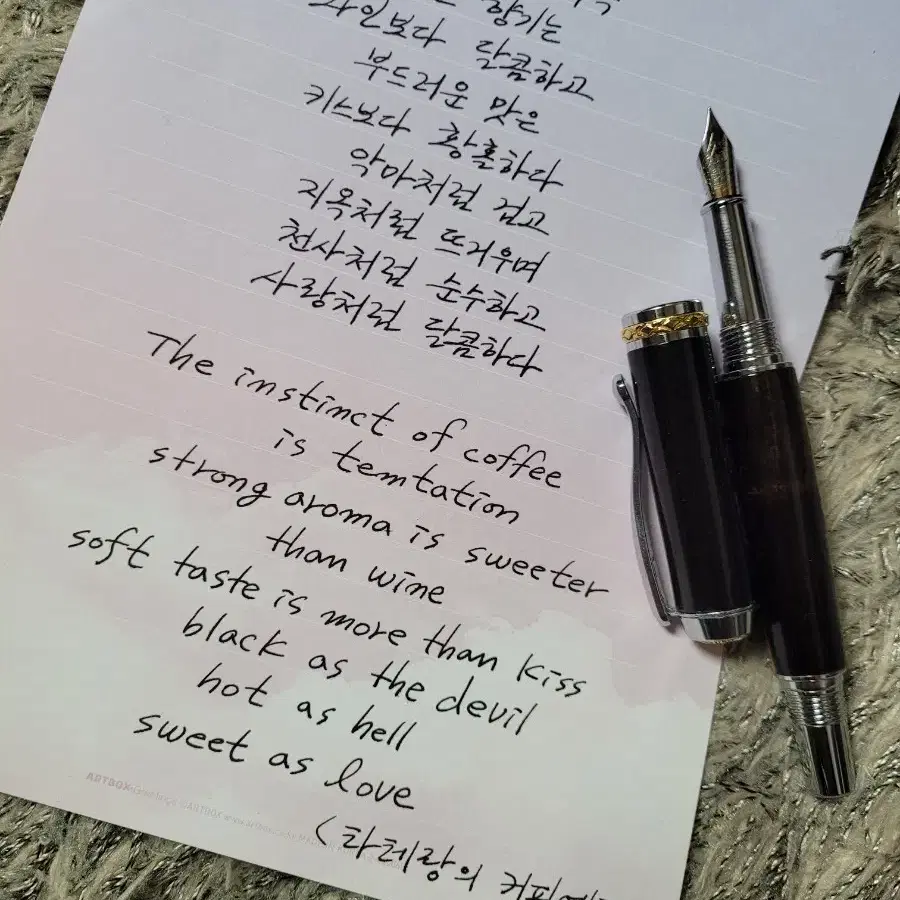 향기는
와인보다 달콤하고
부드러운 맛은
키스보다 황홀하다
악마처럼 검고
지옥처럼 뜨거우며
천사처럼 순수하고
사랑처럼 달콤하다
The instinct of coffee
is temtation
strong aroma is sweeter
than wine
soft taste is more than kiss
black as the devil
hot as hell
sweet as love
ARTBOX
(타레랑의 커피예